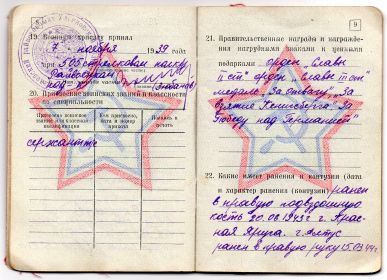 8
19. Военную присягу принял
7 ноября 1939 года
при 505 стрелковом полку
20. Присвоение воинских званий и классности
по специальности
сержант
9
21. Правительственные награды и награжде-
ния нагрудными знаками и ценными
подарками орден „Славы
II ст" орден „Славы III ст"
медаль „За отвагу" „За
взятие Кенигсберга" „За
Победу над Германией"
22. Какие имеет ранения и контузии (дата
и характер ранения (контузии) ранен
в правую подвздошную
кость 20.08.1943 г. г. Крас-
ная Яруга. г.
ранен в правую руку 15.03.44 г.